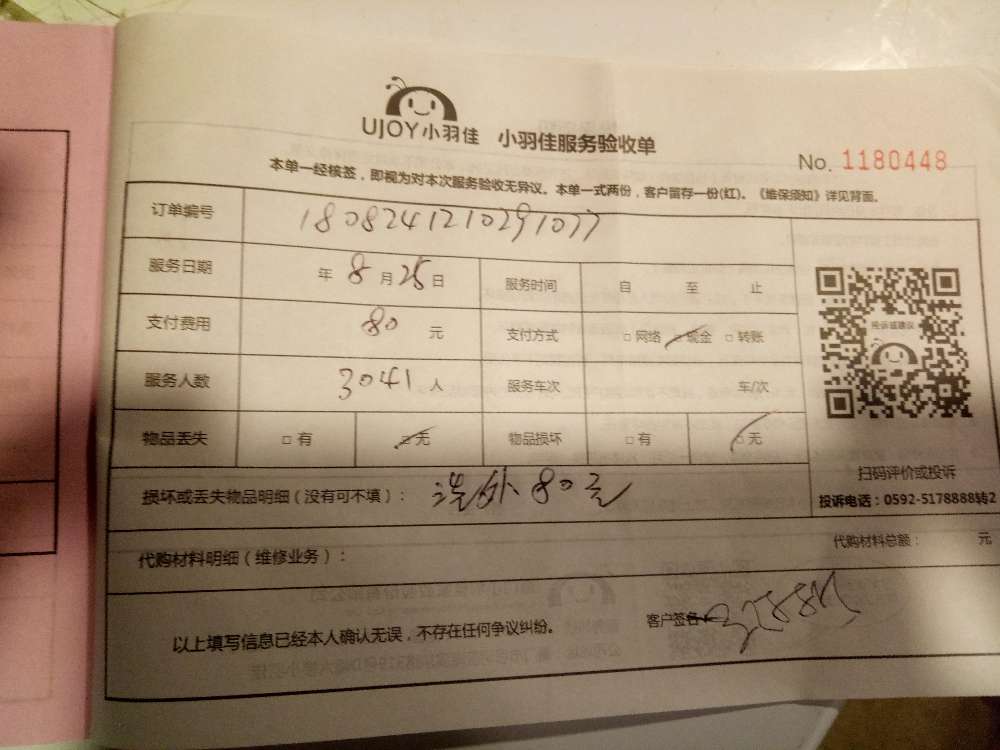 UJOY小羽佳 小羽佳服务验收单
No. 1180448
本单一经核签，即视为对本次服务验收无异议。本单一式两份，客户留存一份(红)。《维保须知》详见背面。
订单编号 1808241210291077
服务日期 年 8 月 25 日 服务时间 自 至 止
支付费用 80 元 支付方式 □ 网络 □ 现金 □ 转账
服务人数 3041 人 服务车次 车/次
物品丢失 □ 有 □ 无 物品损坏 □ 有 □ 无
投诉或建议
扫码评价或投诉
投诉电话：0592-5178888转2
损坏或丢失物品明细（没有可不填）： 洗外80元
代购材料明细（维修业务）： 代购材料总额： 元
以上填写信息已经本人确认无误，不存在任何争议纠纷。 客户签名